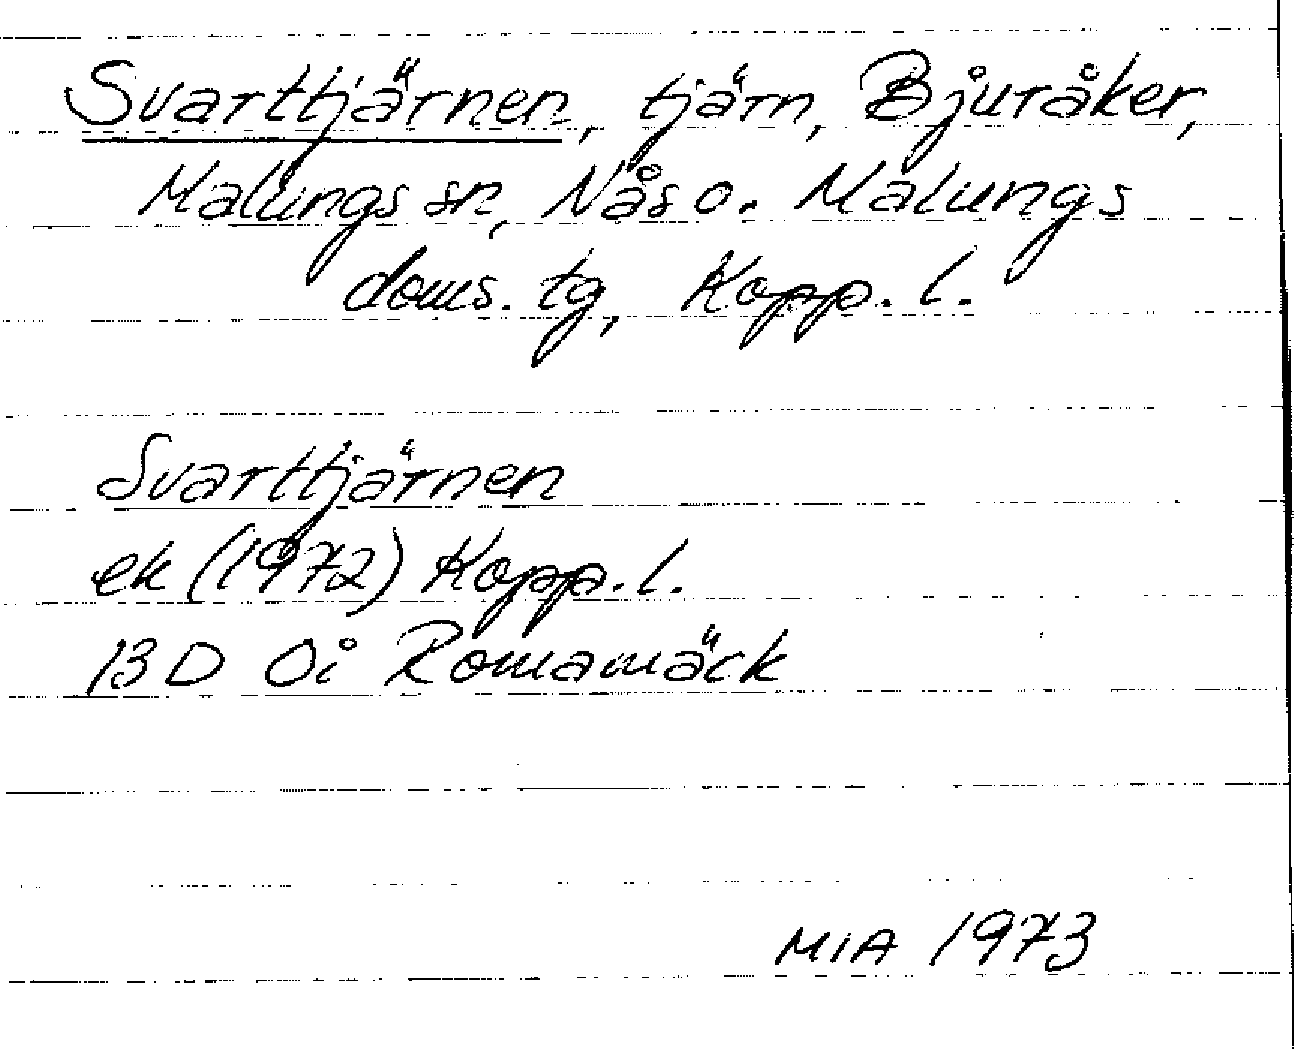 Svarttjärnen, tjärn, Bjuråker,
Malungs sn, Nås o. Malungs
doms. tg, Kopp. l.
Svarttjärnen
ek (1972) Kopp. l.
13 D 0i Romamäck
MIA 1973